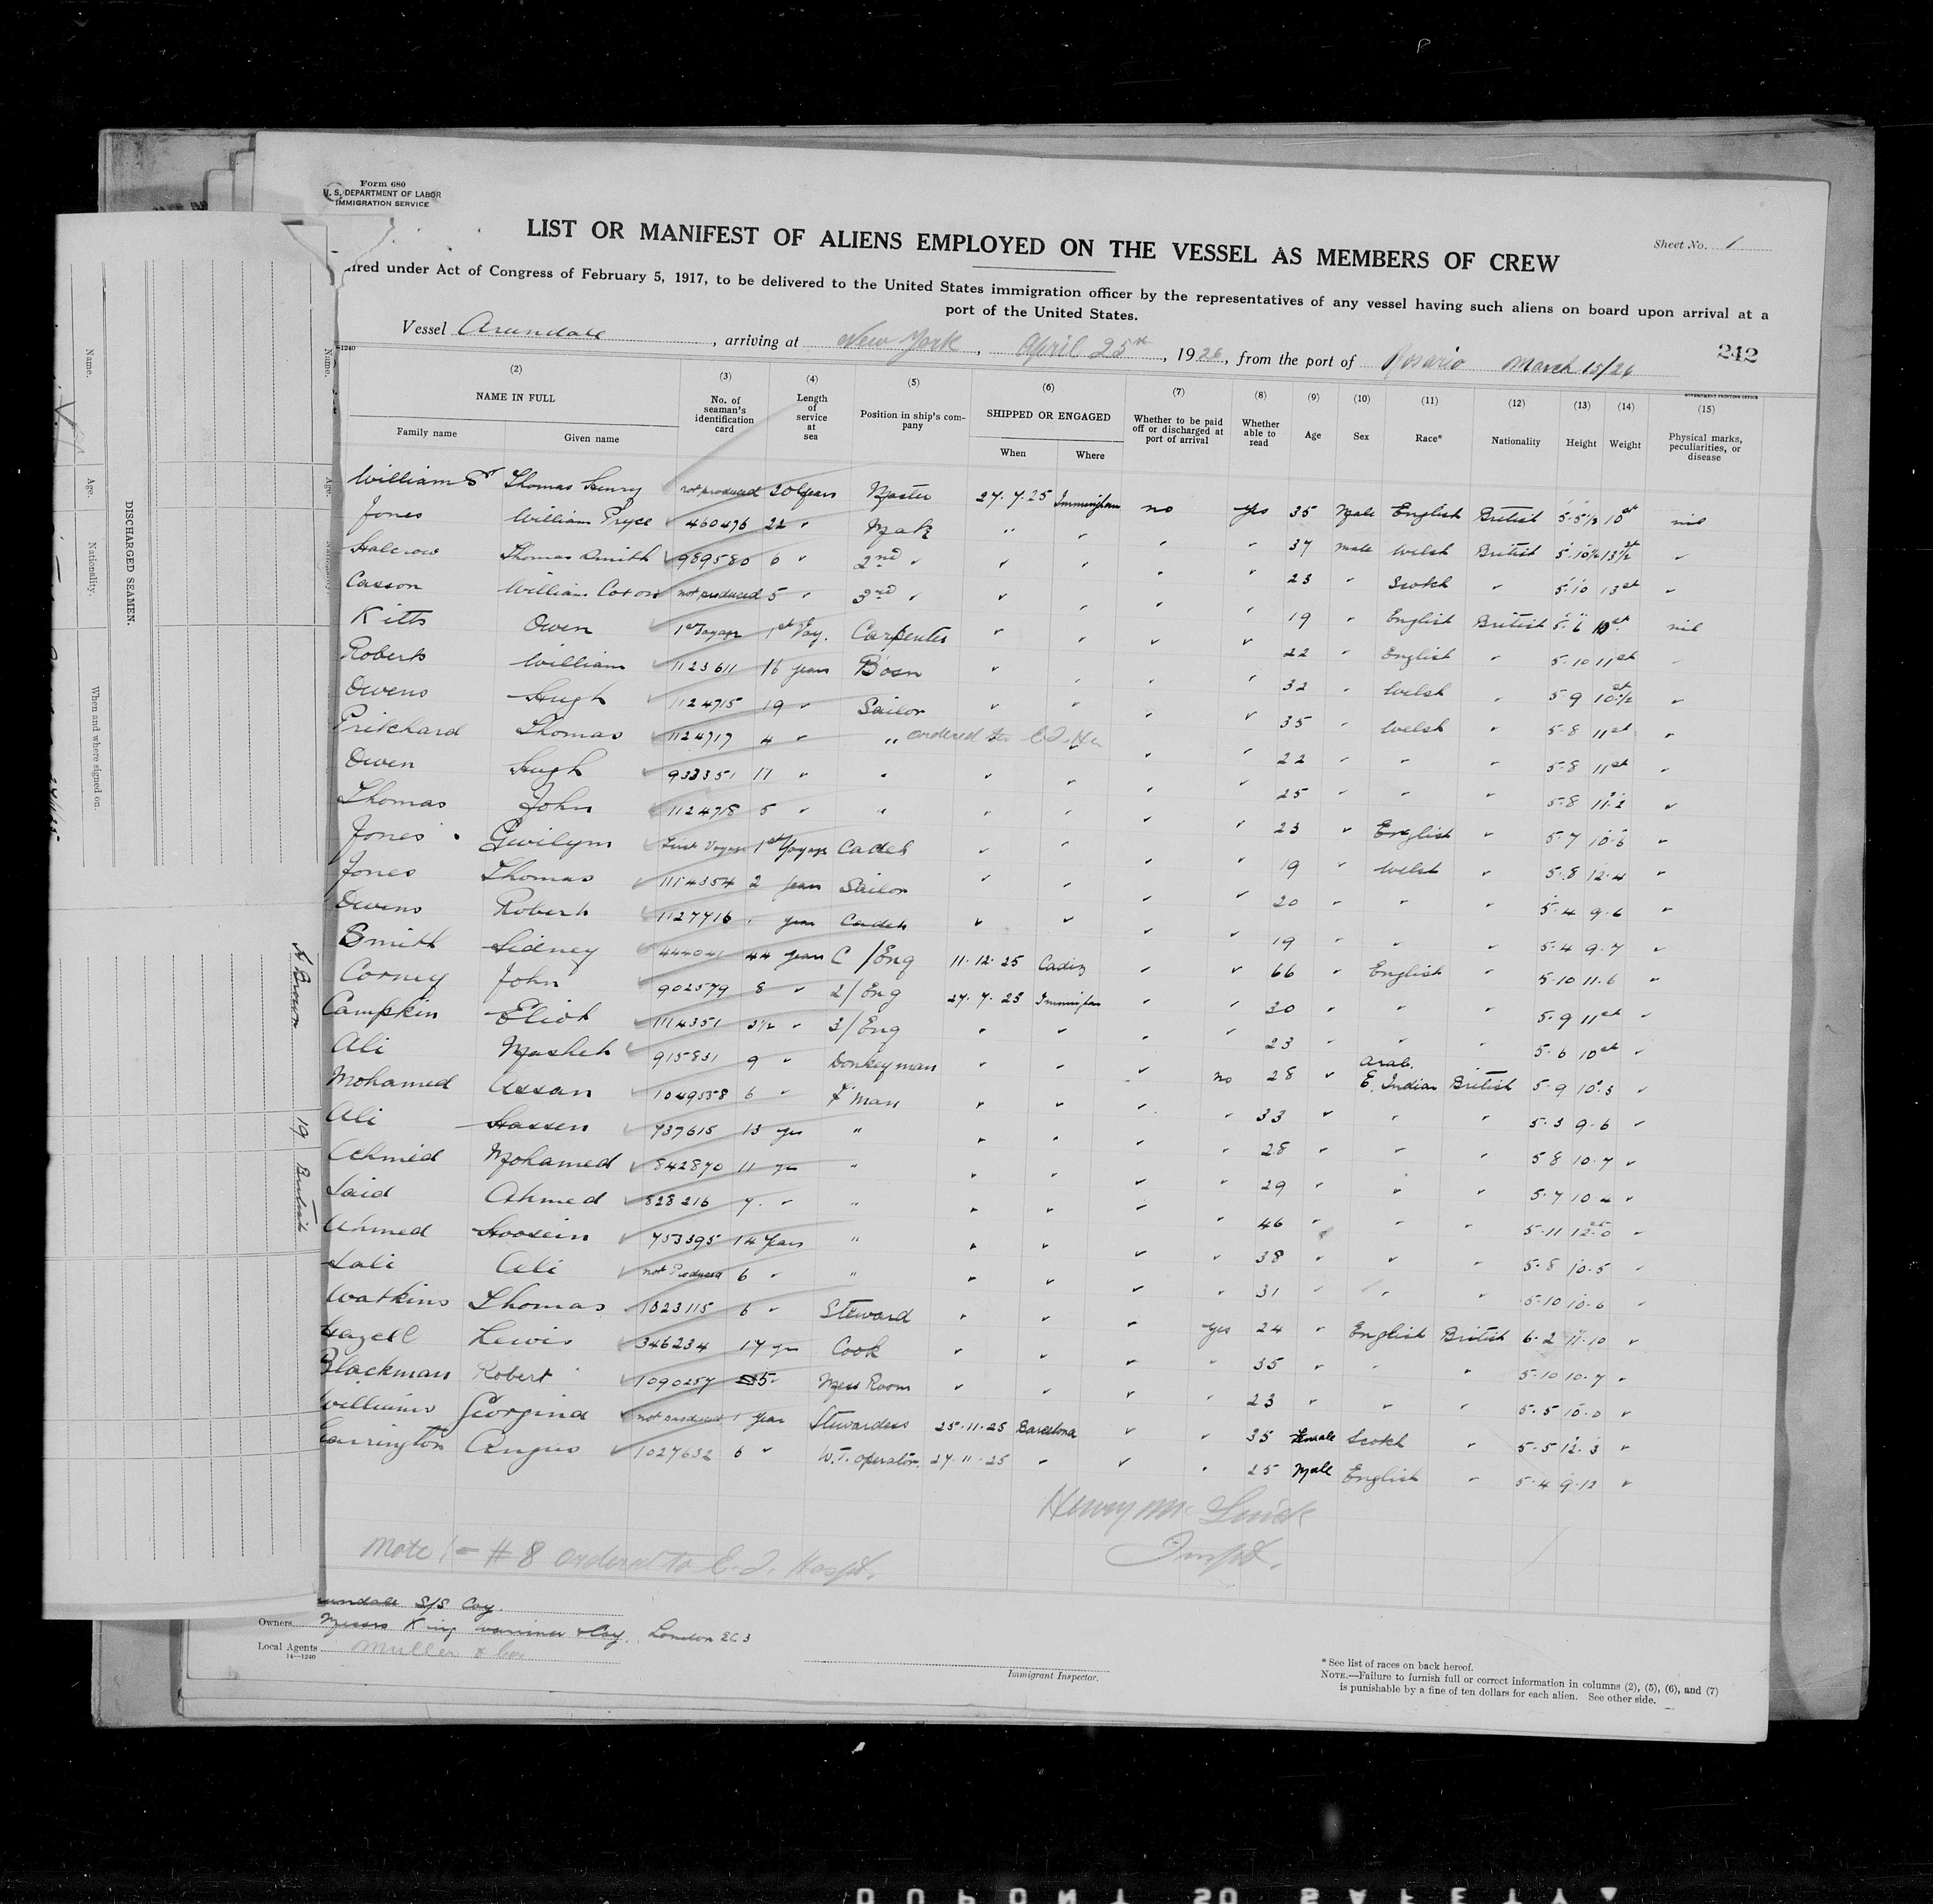 Form 680
U. S. DEPARTMENT OF LABOR
IMMIGRATION SERVICE
LIST OR MANIFEST OF ALIENS EMPLOYED ON THE VESSEL AS MEMBERS OF CREW
Sheet No. 1
ired under Act of Congress of February 5, 1917, to be delivered to the United States immigration officer by the representatives of any vessel having such aliens on board upon arrival at a
port of the United States.
Vessel Arundale, arriving at New York, April 25th, 1926, from the port of Rosario March 13/26
242
(2) (3) (4) (5) (6) (7) (8) (9) (10) (11) (12) (13) (14) (15)
NAME IN FULL No. of seaman's identification card Length of service at sea Position in ship's company SHIPPED OR ENGAGED Whether to be paid off or discharged at port of arrival Whether able to read Age Sex Race* Nationality Height Weight Physical marks, peculiarities, or disease
Family name Given name When Where
Williams Thomas Henry not produced 20 years Master 27.7.25 Immingham no yes 35 Male English British 5.5½ 10st nil
Jones William Pryce 460476 22 " Mate " " " " 37 male Welsh British 5.10½ 13½st "
Halcrow Thomas Smith 989580 6 " 2nd " " " " " 23 " Scotch " 5.10 13st "
Casson William not produced 5 " 3rd " " " " " 19 " English British 5.6 10st nil
Kitts Owen 1st Voyage 1st Voy. Carpenter " " " " 22 " English " 5.10 11st
Roberts William 1123611 16 years Bosn " " " " 32 " Welsh " 5.9 10½st "
Owens Hugh 1124715 19 " Sailor " " " " 35 " Welsh " 5.8 11st "
Pritchard Thomas 1124717 4 " " ordered to E.I. " " 22 " " " 5.8 11st "
Owen Hugh 933351 11 " " " " " " 25 " " " 5.8 11.2 "
Thomas John 1124718 5 " " " " " " 23 " English " 5.7 10.6 "
Jones Gwilym First Voyage 1st Voyage Cadet " " " " 19 " Welsh " 5.8 12.4 "
Jones Thomas 1114354 2 years Sailor " " " " 20 " " " 5.4 9.6 "
Owens Robert 1127716 1 year Cadet " " " " 19 " " " 5.4 9.7 "
Smith Sidney 444041 44 years C/Eng 11.12.25 Cadiz " " 66 " English " 5.10 11.6 "
Corney John 902579 8 " 2/Eng 27.7.25 Immingham " " 30 " " " 5.9 11st "
Campkin Eliot 1114351 3½ " 3/Eng " " " " 23 " " " 5.6 10st "
Ali Mosheh 915831 9 " Donkeyman " " " no 28 " Arab. E. Indian British 5.9 10.3 "
Mohamed Assan 1049558 6 " F man " " " " 33 " " " 5.3 9.6 "
Ali Hassen 737615 13 yrs " " " " " 28 " " " 5.8 10.7 "
Achmed Mohamed 842870 11 yrs " " " " " 29 " " " 5.7 10.4 "
Said Ahmed 828216 7. " " " " " " 46 " " " 5.11 12.0 "
Ahmed Hoosein 753395 14 years " " " " " 38 " " " 5.8 10.5 "
Sali Ali not Produced 6 " " " " " " 31 " " " 5.10 10.6 "
Watkins Thomas 1023115 6 " Steward " " " yes 24 " English British 6.2 11.10 "
Hazell Lewis 346234 17 yrs Cook " " " " 35 " " " 5.10 10.7 "
Blackman Robert 1090257 5 " Mess Room " " " " 23 " " " 5.5 10.0 "
Williams Georgina not produced 1 year Stewardess 25.11.25 Barcelona " " 35 Female Scotch " 5.5 12.3 "
Carrington Angus 1027632 6 " W.T. operator. 27.11.25 " " " 25 Male English " 5.4 9.12 "
Note 1 - #8 ordered to E. I. Hospt.
Inspt.
undale S/S Coy.
Owners Messrs King & Coy. London EC3
Local Agents Muller & Co
14—1240
Immigrant Inspector.
* See list of races on back hereof.
NOTE.—Failure to furnish full or correct information in columns (2), (5), (6), and (7)
is punishable by a fine of ten dollars for each alien. See other side.
DISCHARGED SEAMEN.
Name.
Age.
Nationality.
When and where signed on.
Brown 19 British